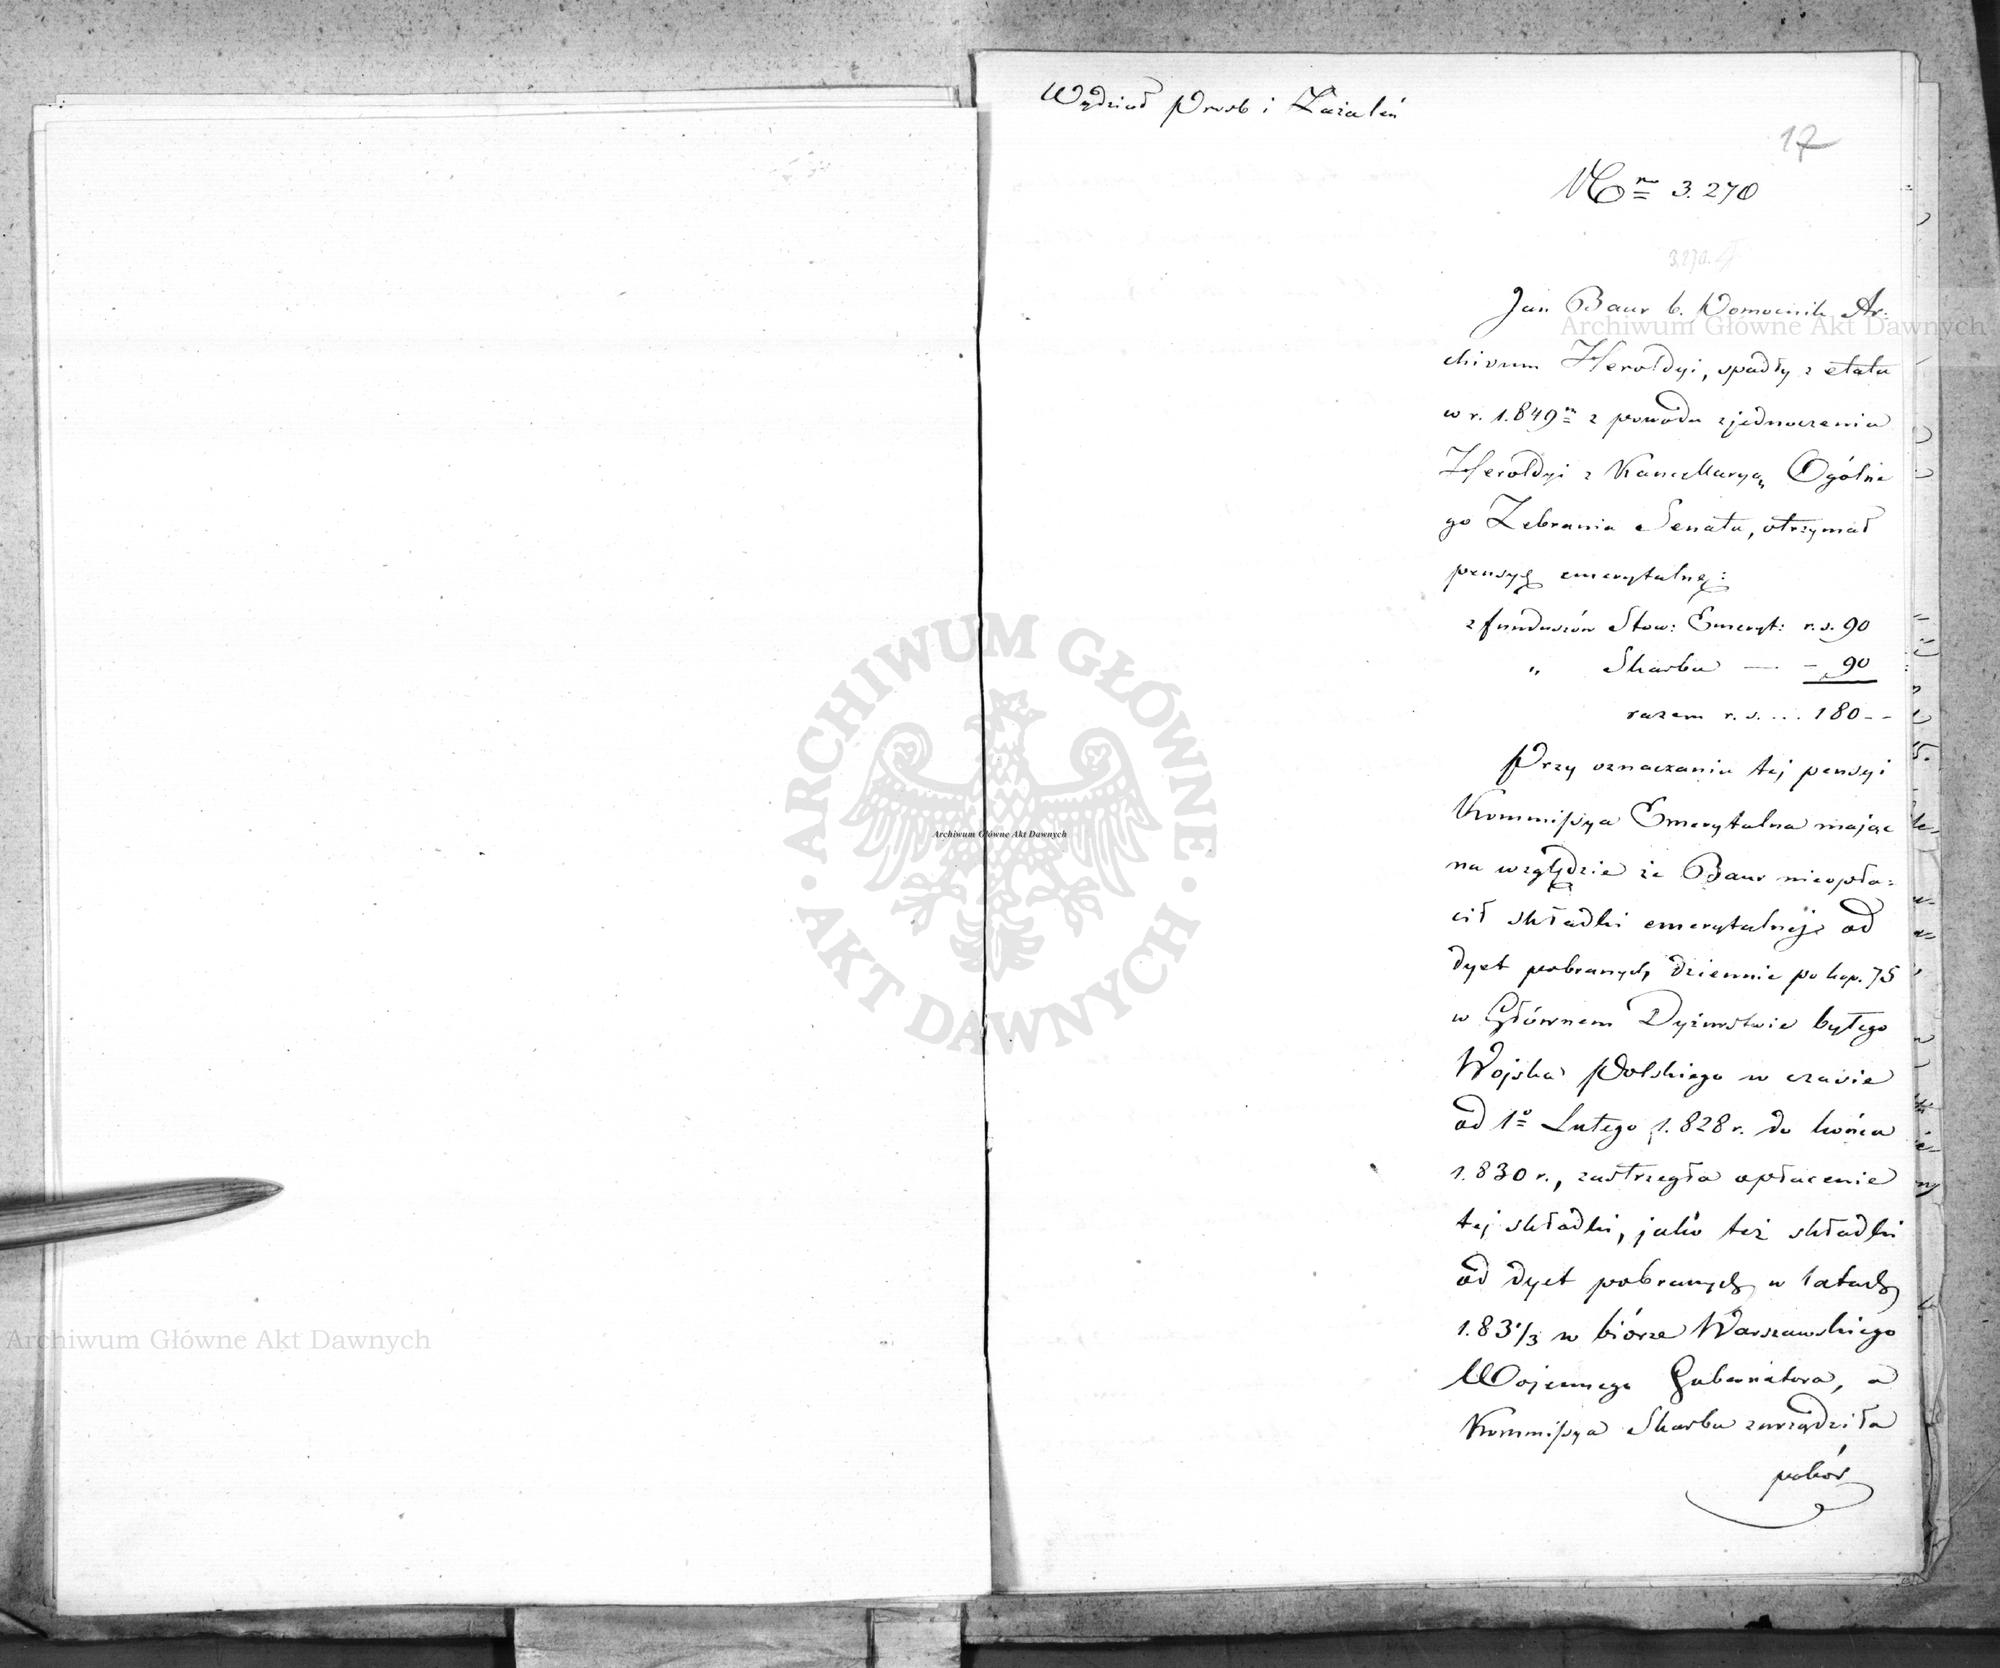 Wydział Prosb i Zażaleń
17
Nro 3.270
3.270.
Jan Baur b. Pomocnik Ar-
chivum Heroldyi, spadły z etatu
w r. 1.849m z powodu zjednoczenia
Heroldyi z Kancellaryą Ogólne
go Zebrania Senatu, otrzymał
pensyę emerytalnę:
z funduszów Stow: Emeryt: r. s. 90
" Skarbu — - 90
razem r. s. ... 180 - -
Przy oznaczaniu tej pensyi
Kommissya Emerytalna mając
na względzie że Baur nieopła-
cił składki emerytalnej od
dyet pobranych dziennie po kop. 75
w Głównem Dyżurstwie byłego
Wojska Polskiego w czasie
od 1o Lutego 1.828 r. do końca
1.830 r., zastrzegła opłacenie
tej składki, jako też składki
od dyet pobranych w latach
1.831/3 w biórze Warszawskiego
Wojennego Gubernatora, a
Kommissya Skarbu zarządziła
pobór
Archiwum Główne Akt Dawnych
ARCHIWUM GŁÓWNE
AKT DAWNYCH
Archiwum Główne Akt Dawnych
Archiwum Główne Akt Dawnych